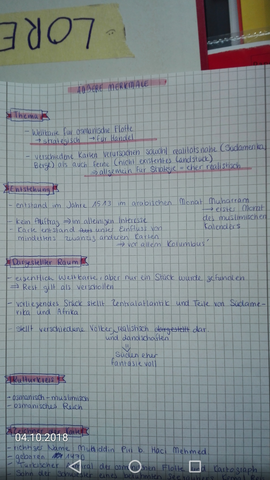 LORE
ÄUßERE MERKMALE
Thema
- Weltkarte für osmanische Flotte
→ strategisch → für Handel
- verschiedene Karten versuchen sowohl realitätsnahe (Südamerika,
Berge) als auch ferne (nicht existentes Landstück)
→ allgemein für Strategie - eher realistisch
Entstehung
- entstand im Jahre 1513 im arabischen Monat Muharram
→ erster Monat
des muslimischen
Kalenders
- kein Auftrag → im alleinigen Interesse
- Karte entstand unter Einfluss von
mindestens zwanzig anderen Karten
→ vor allem Kolumbus
Dargestellter Raum
- eigentlich Weltkarte, aber nur ein Stück wurde gefunden
→ Rest gilt als verschollen
- vorliegendes Stück stellt Zentralatlantik und Teile von Südame-
rika und Afrika
- stellt verschiedene Völker realistisch dargestellt dar
und Landschaften
sachen eher
fantasievoll
Kulturkreis
- osmanisch-muslimisch
- osmanisches Reich
04.10.2018
- richtiger Name: Muhiddin Piri b. Hacı Mehmed
- geboren 1470
der osmanischen Flotte Kartograph